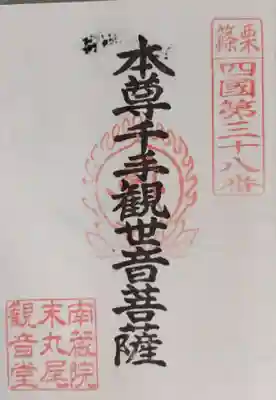 篠栗
四國第三十八番
本尊千手觀世音菩薩
南蔵院
末丸尾
観音堂